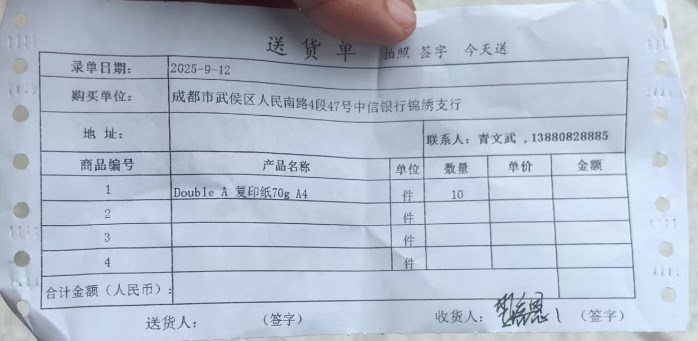 送货单 拍照 签字 今天送
录单日期： 2025-9-12
购买单位： 成都市武侯区人民南路4段47号中信银行锦绣支行
地 址： 联系人：青文武 ,13880828885
商品编号 产品名称 单位 数量 单价 金额
1 Double A 复印纸70g A4 件 10
2 件
3 件
4 件
合计金额（人民币）：
送货人： （签字） 收货人： （签字）